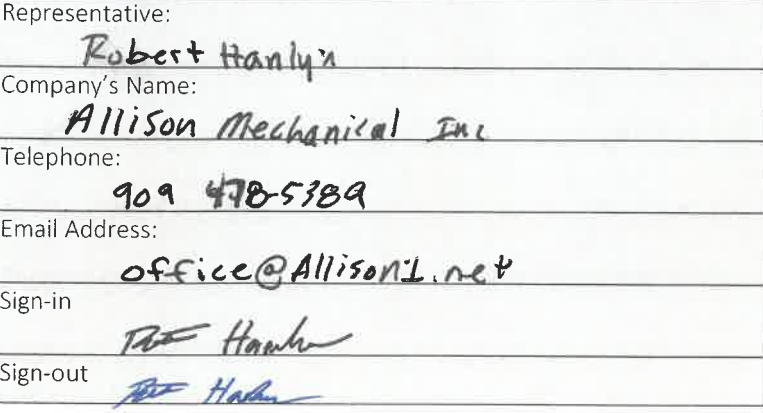 Representative:
Robert Hanlyn
Company's Name:
Allison Mechanical Inc
Telephone:
909 478-5389
Email Address:
office@Allison1.net
Sign-in
Sign-out